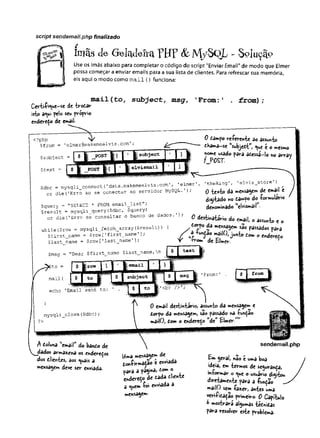 script sendemail.php finalizado
Ímãs de Geladeira PHP & MySQL - Solução
Use os ímãs abaixo para completar o código do script "Enviar Email" de modo que Elmer
possa começar a enviar emails para a sua lista de clientes. Para refrescar sua memória,
eis aqui o modo como mail() funciona:
mail(to, subject, msg, 'From:' . from);
Certifique-se de trocar
isto aqui pelo seu próprio
endereço de email.
<?php
$from = 'elmer@makemeelvis.com';
$subject = $ _POST [ ' subject ' ] ;
$text = $ _POST [ ' elvismail ' ] ;
O campo referente ao assunto
chama-se "subject", que é o mesmo
nome usado para acessá-lo no array
$_POST.
$dbc = mysqli_connect('data.makemeelvis.com', 'elmer', 'theking', 'elvis_store')
or die('Erro ao se conectar ao servidor MySQL.');
O texto da mensagem de email é
digitado no campo do formulário
denominado "elvismail".
$query = "SELECT * FROM email_list";
$result = mysqli_query($dbc, $query)
or die('Erro ao consultar o banco de dados.');
O destinatário do email, o assunto e o
corpo da mensagem são passados para
a função mail(), junto com o endereço
"from" de Elmer.
while($row = mysqli_fetch_array($result)) {
$first_name = $row['first_name'];
$last_name = $row['last_name'];
$msg = "Dear $first_name $last_name,\n $ text
$to = $ row [ ' email ' ] ;
mail( $ to , $ subject , $ msg , 'From:' . $ from
echo 'Email sent to: ' . $ to . '<br />';
}
mysqli_close($dbc);
?>
O email destinatário, assunto da mensagem e
corpo da mensagem, são passados na função
mail(), com o endereço "de" Elmer
sendemail.php
A coluna "email" do banco de
dados armazena os endereços
dos clientes, aos quais a
mensagem deve ser enviada.
Uma mensagem de
confirmação é enviada
para a página, com o
endereço de cada cliente
a quem foi enviada a
mensagem.
Em geral, não é uma boa
ideia, em termos de segurança,
informar o que o usuário digitou
diretamente para a função
mail() sem fazer, antes uma
verificação primeiro. O Capítulo
6 mostrará algumas técnicas
para resolver este problema.